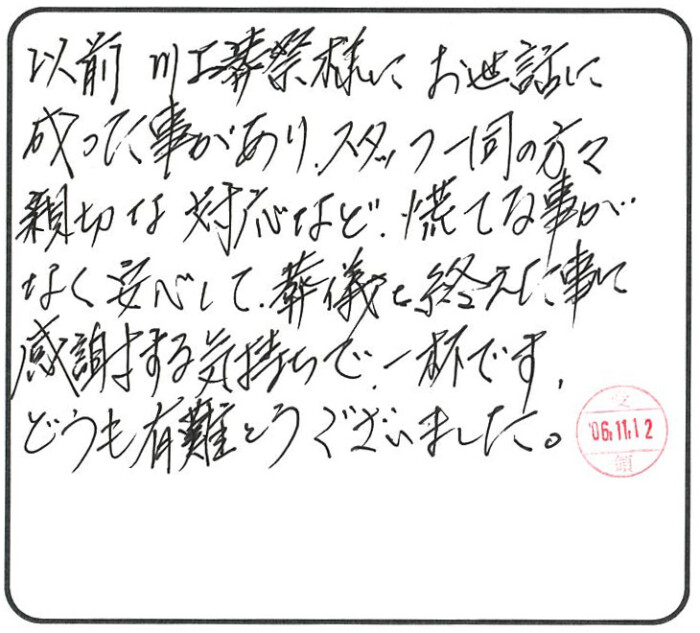 以前 川上葬祭様に お世話に
成った事があり、スタッフ一同の方々
親切な 対応など、慌てる事が
なく安心して、葬儀を終えた事に
感謝する気持ちで、一杯です、
どうも有難とうございました。
受
'06.11.12
領